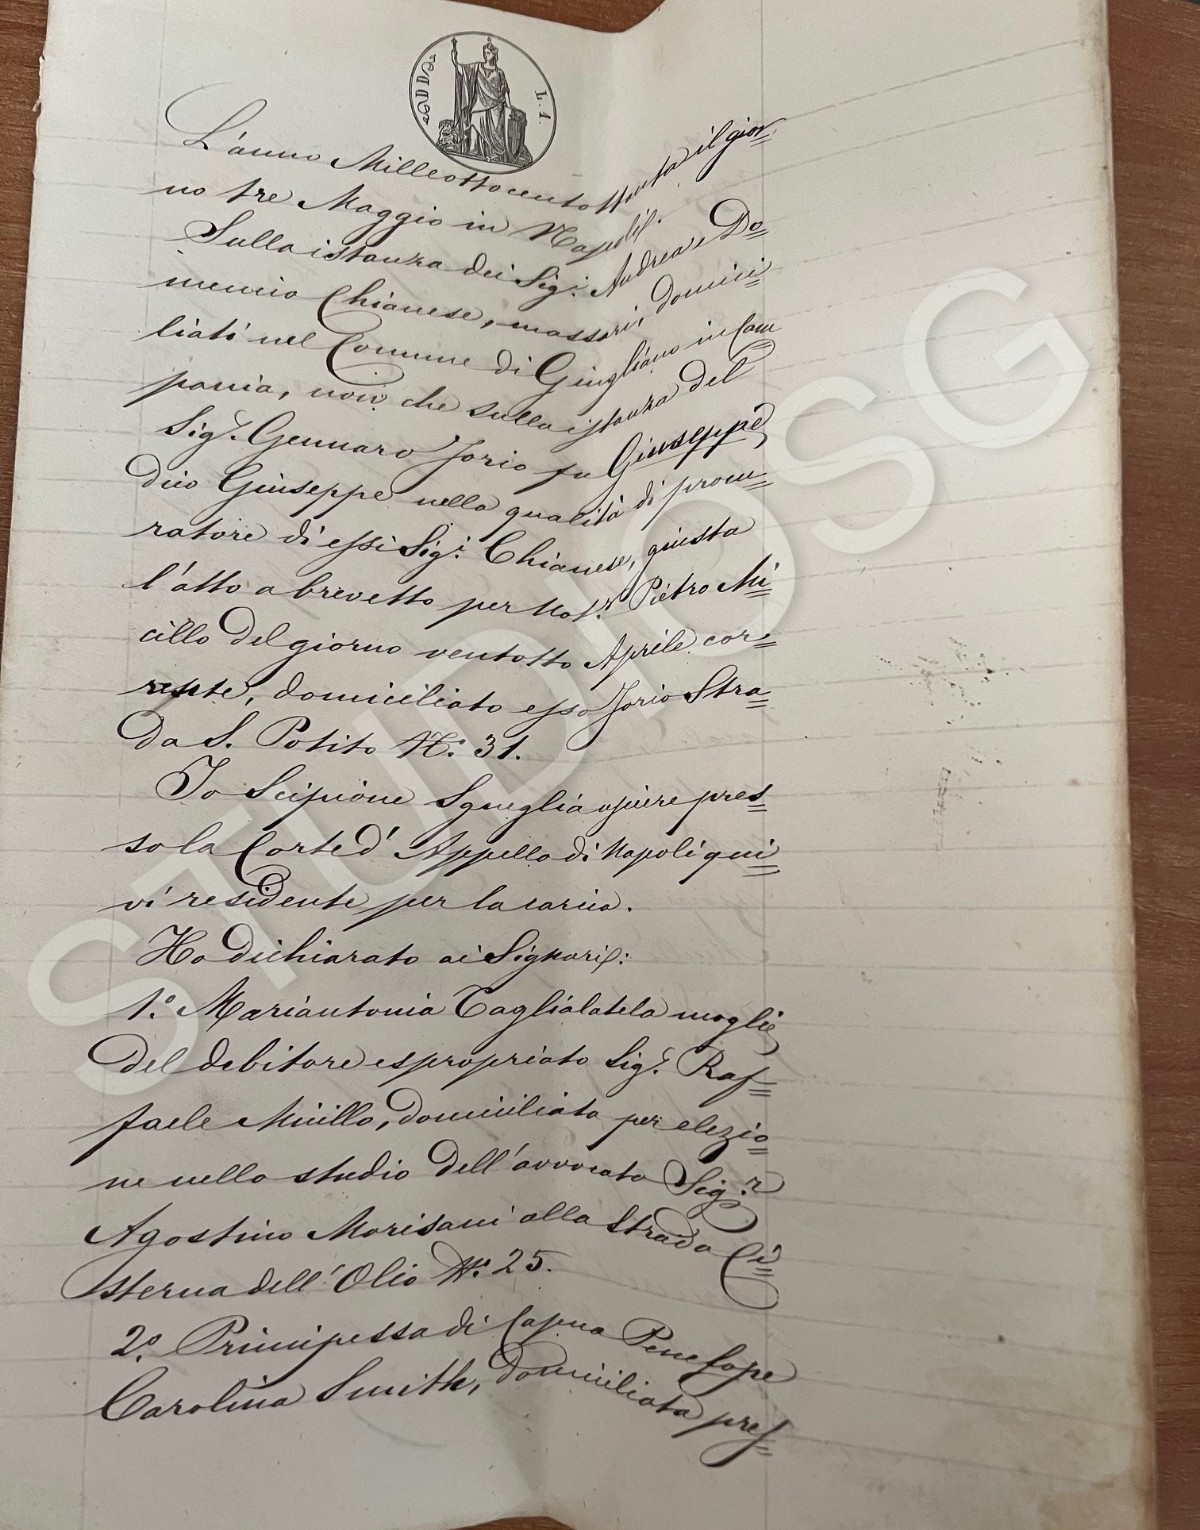 L. 1.
L'anno Milleottocentottanta il gior=
no tre Maggio in Napoli.
Sulla istanza dei Sig.i Andrea e Do=
menico Chianese, massari, domici=
liati nel Comune di Giugliano in Cam
pania, non che sulla istanza del
Sig.r Gennaro Jorio fu Giuseppe,
dico Giuseppe nella qualità di procu=
ratore di essi Sig.i Chianese, giusta
l'atto a brevetto per Not.r Pietro Mi=
cillo del giorno ventotto Aprile cor=
rente, domiciliato esso Jorio Stra=
da S. Potito N.o 31.
Io Scipione Squeglia usciere pres=
so la Corte d'Appello di Napoli qui=
vi residente per la carica.
Ho dichiarato ai Signori:
1.o Mariantonia Taglialatela moglie
del debitore espropriato Sig.r Raf=
faele Micillo, domiciliata per elezio=
ne nello studio dell'avvocato Sig.r
Agostino Morisani alla Strada Ci=
sterna dell'Olio N.o 25.
2.o Principessa di Capua Penelope
Carolina Smith, domiciliata pres=
STUDIOSG